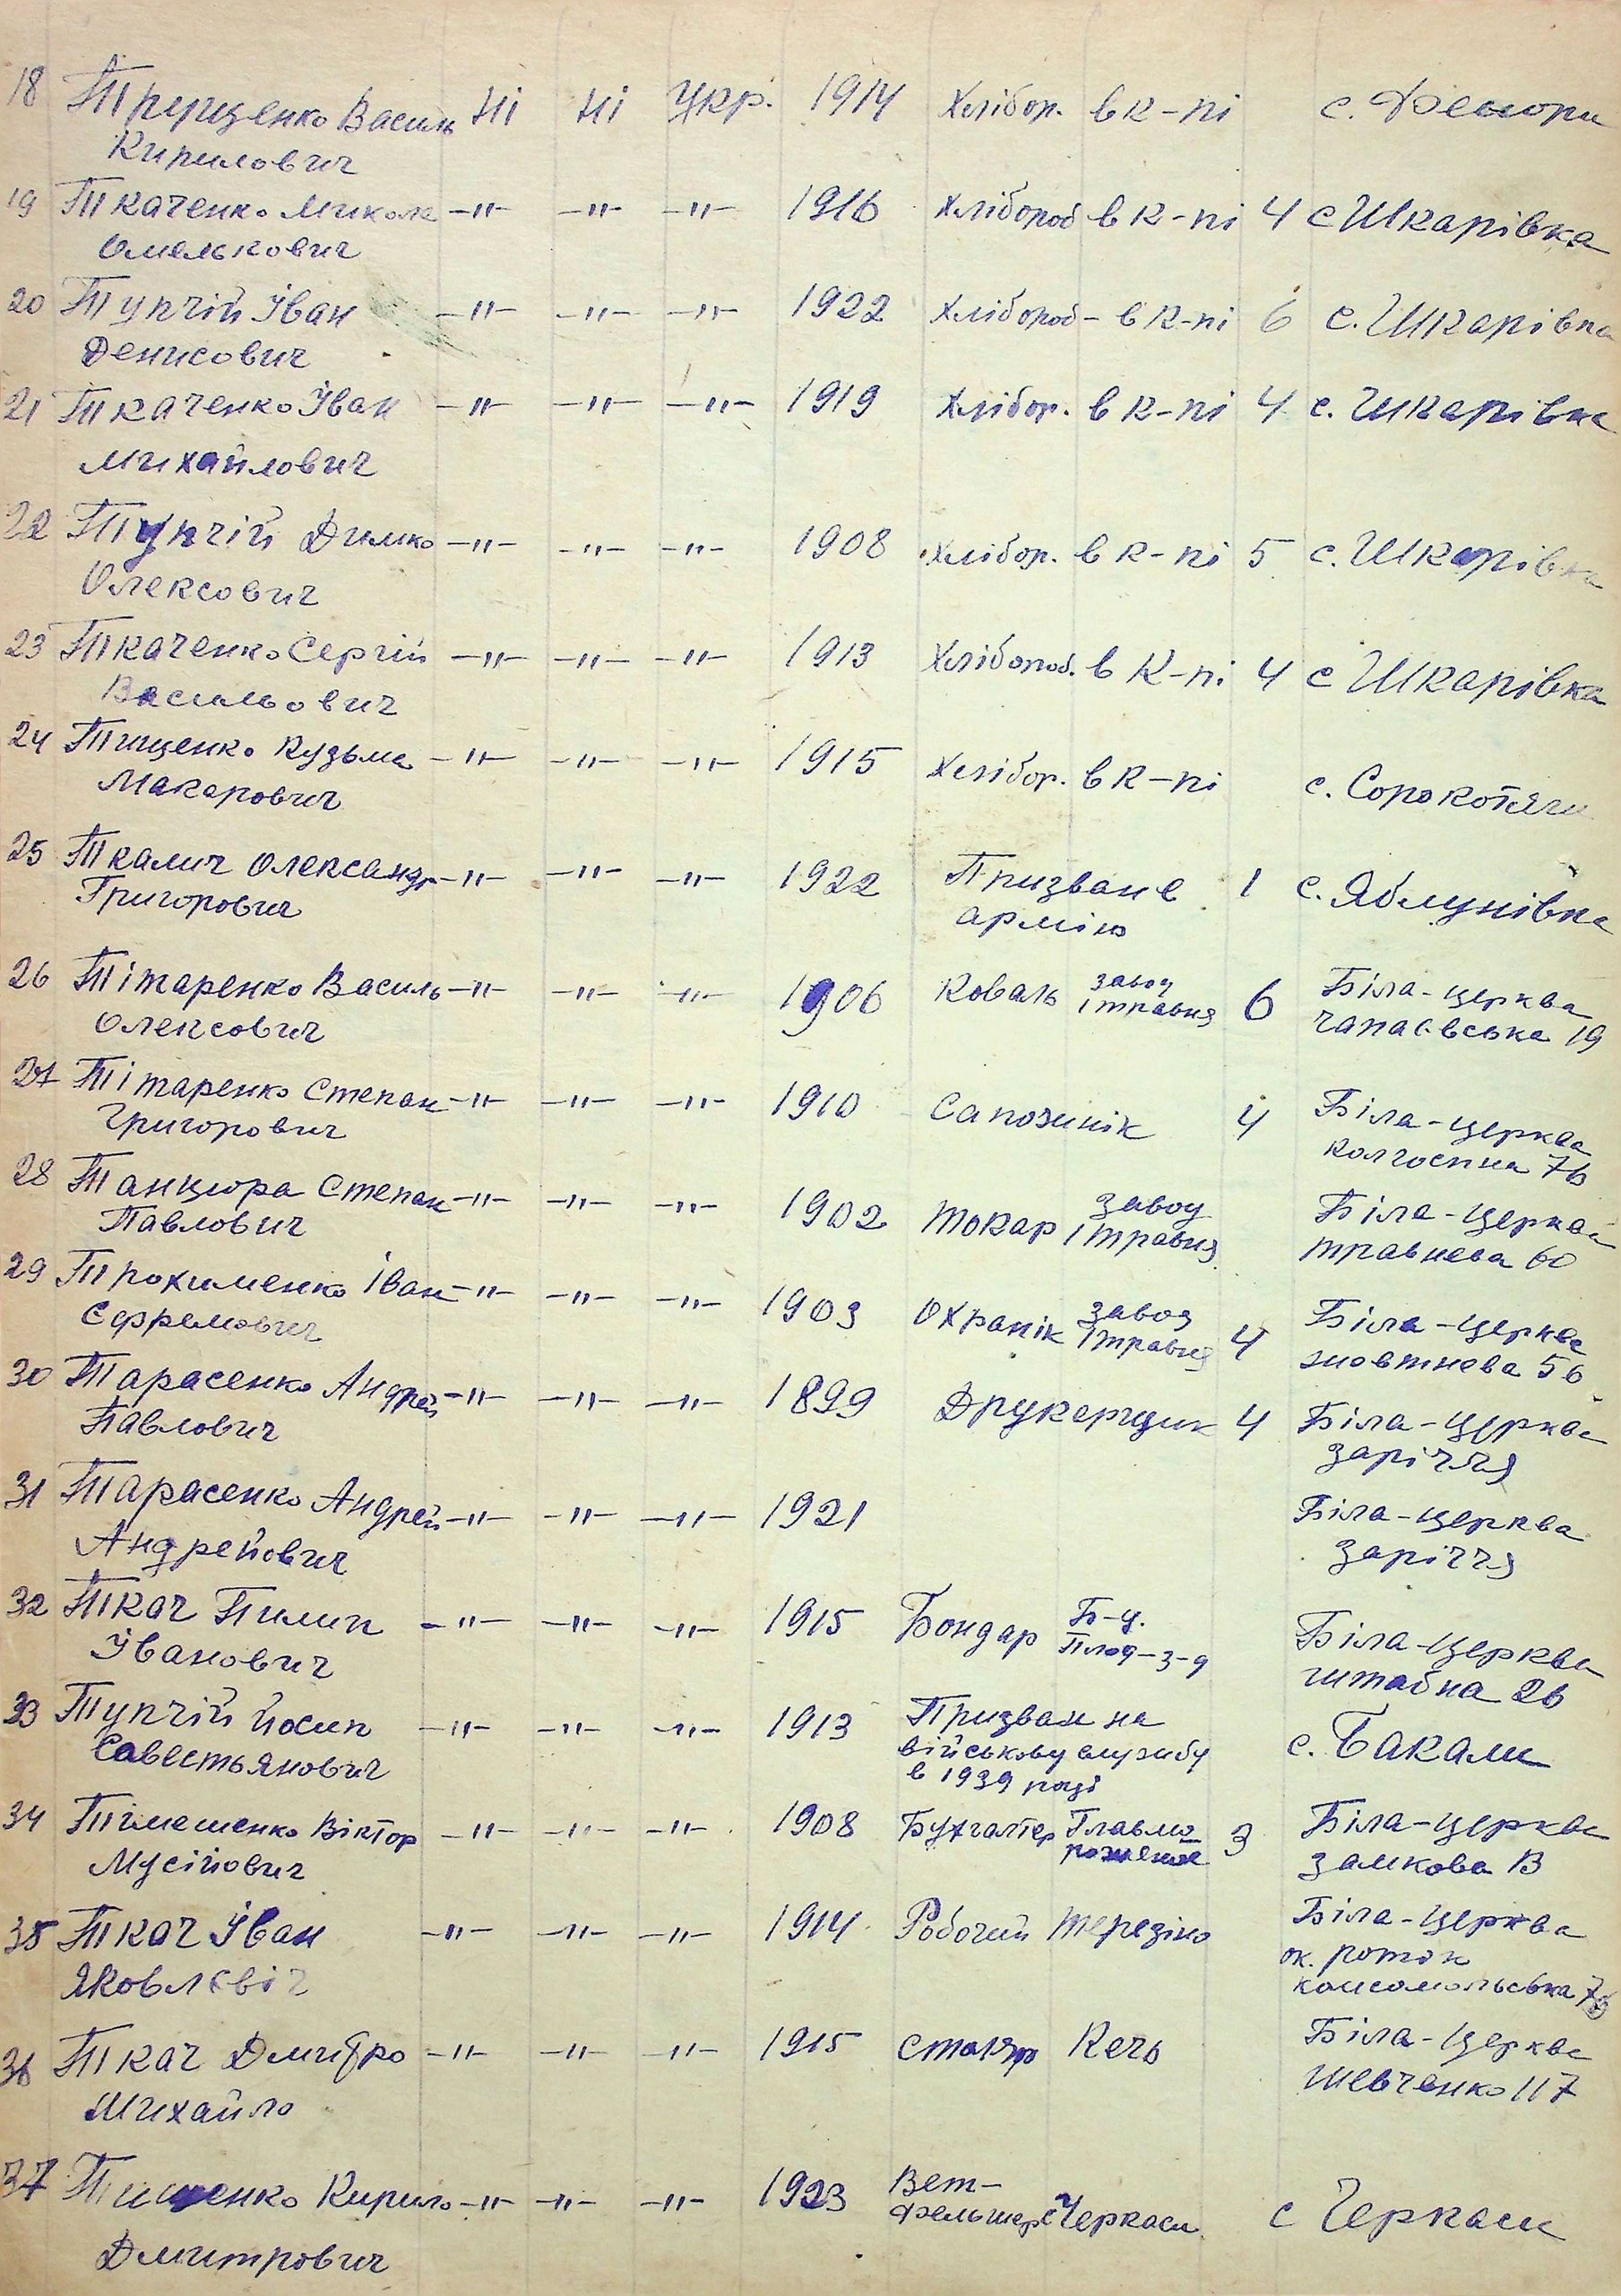 18 Трущенко Василь Ні Ні Укр. 1914 Хлібор. в к-пі с. Фесюри
Кирилович
19 Ткаченко Микола -"- -"- -"- 1916 Хлібороб в к-пі 4 с Шкарівка
Омелькович
20 Тупчій Іван -"- -"- -"- 1922 Хлібороб- в к-пі 6 с. Шкарівка
Денисович
21 Ткаченко Іван -"- -"- -"- 1919 Хлібор. в к-пі 4 с. Шкарівка
Михайлович
22 Тупчій Димко -"- -"- -"- 1908 Хлібор. в к-пі 5 с. Шкарівка
Олексович
23 Ткаченко Сергій -"- -"- -"- 1913 Хлібороб. в к-пі 4 с Шкарівка
Васильович
24 Тищенко Кузьма -"- -"- -"- 1915 Хлібор. в к-пі с. Сорокотяги
Макарович
25 Ткалич Олександр -"- -"- -"- 1922 Призван в 1 с. Яблунівка
Григорович армію
26 Тітаренко Василь -"- -"- -"- 1906 Коваль завод 6 Біла-церква
Олексович 1 травня чапаєвська 19
27 Тітаренко Степан -"- -"- -"- 1910 Сапожнік 4 Біла-церква
Григорович колгоспна 76
28 Танцюра Степан -"- -"- -"- 1902 токар завод Біла-церква
Павлович 1 травня травнева 60
29 Трохименко Іван -"- -"- -"- 1903 Охранік завод 4 Біла-церква
Єфремович 1 травня жовтнева 56
30 Тарасенко Андрей -"- -"- -"- 1899 Друкарщик 4 Біла-церква
Павлович заріччя
31 Тарасенко Андрей -"- -"- -"- 1921 Біла-церква
Андрейович заріччя
32 Ткач Пилип -"- -"- -"- 1915 Бондар Б-ц. Біла-церква
Іванович Плод-з-д штабна 26
33 Тупчій Йосип -"- -"- -"- 1913 Призван на с. Бакали
Савестьянович військову службу
в 1939 році
34 Тімешенко Віктор -"- -"- -"- 1908 Бухгалтер Главмо 3 Біла-церква
Мусійович роженое замкова В
35 Ткач Іван -"- -"- -"- 1914 Робочий Терезіно Біла-церква
Яковлєвіч ок. роток
комсомольська
36 Ткач Дмитро -"- -"- -"- 1915 столяр Кечь Біла-церква
Михайло Шевченко 117
37 Тишенко Кирило -"- -"- -"- 1923 Вет- с Черкаси
Дмитрович фельшер с Черкаси